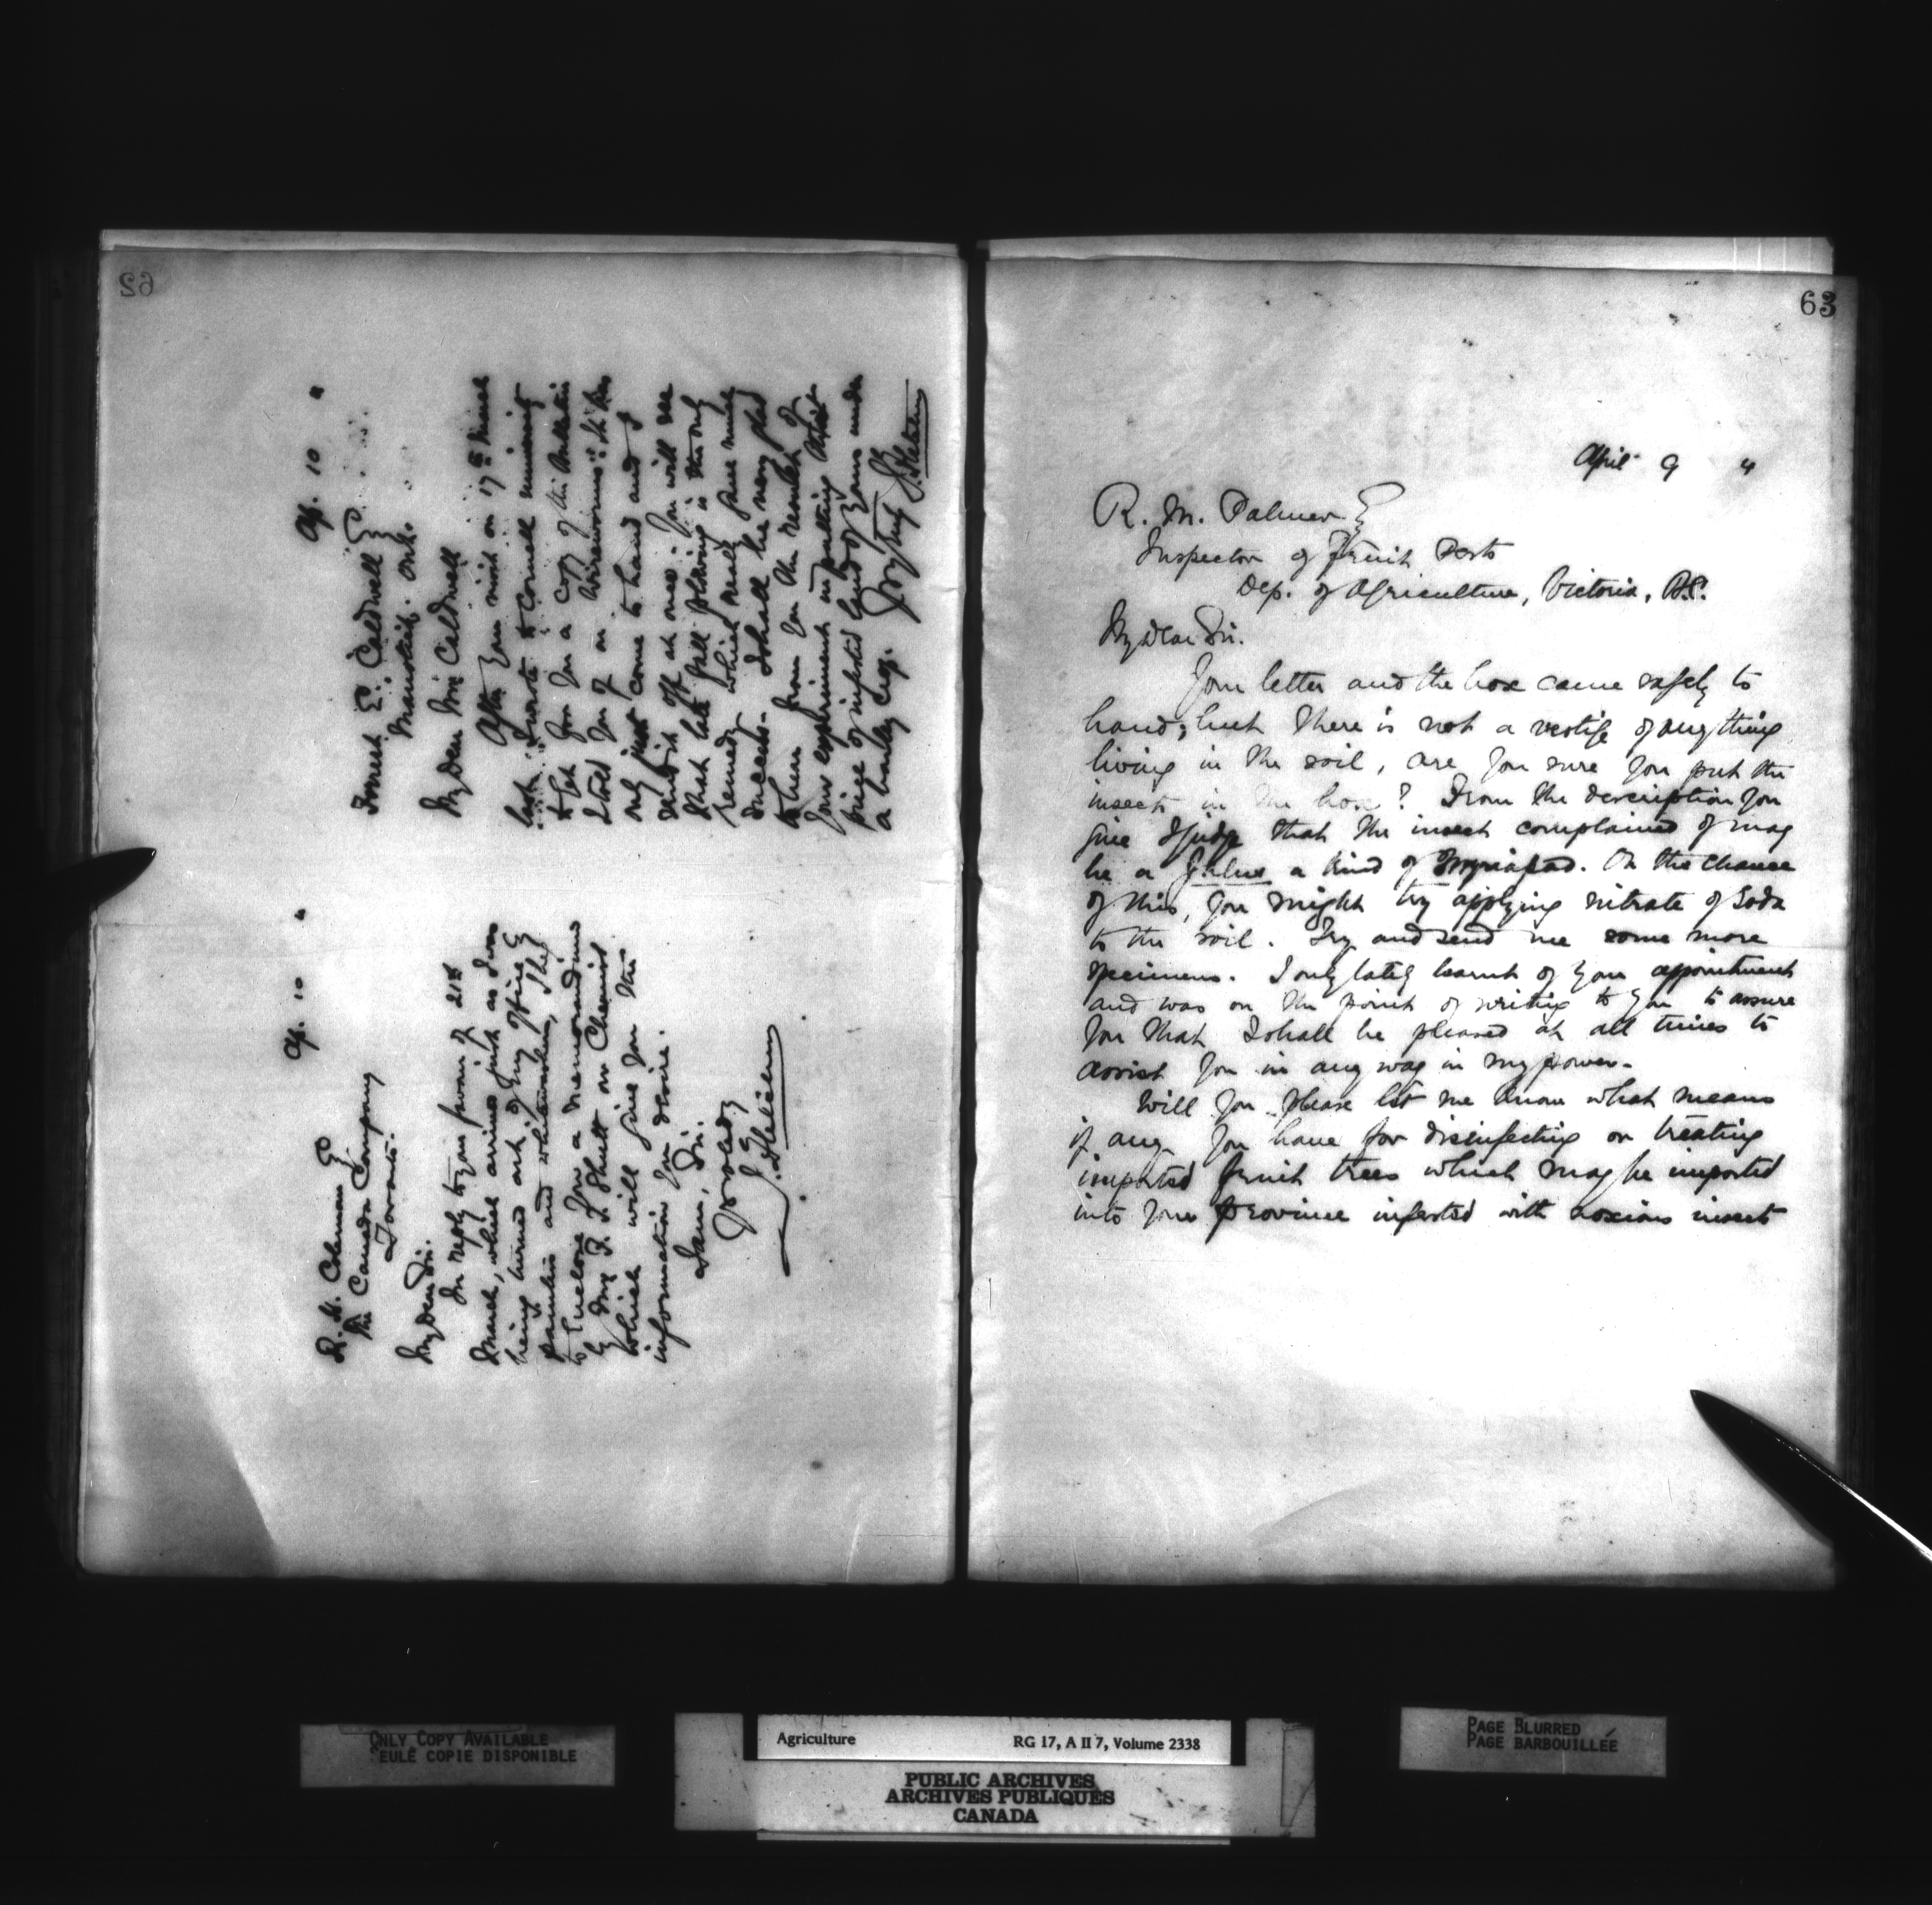 62
Ap. 10 "
Forrest E. Caldwell Esq
Manotick. Ont.
My dear Mr Caldwell
After your visit on 17th March
last I wrote to Cornell University
to get for you a copy of the bulletin
I told you of on "Wireworms". It has
only just come to hand and I
send it off at once. You will see
that late fall plowing is the only
remedy which really gave much
success. I shall be very glad
to hear from you the result of
your experiment in putting that
piece of infested land of yours under
a barley crop. Yrs truly
J. Fletcher
Ap. 10 "
R. H. Coleman Esq
The Canada Company
Toronto.
My dear Sir.
In reply to your favor of 21st
March, which arrived just as I was
being turned out of my office by
painters and whitewashers, I beg
to enclose you a memorandum
by Mr F. T. Shutt our Chemist
which will give you the
information you desire.
I am, Sir.
Yrs truly
J. Fletcher
63
April 9 4
R. M. Palmer Esq
Inspector of Fruit Pests
Dep. of Agriculture, Victoria, B.C.
My dear Sir.
Your letter and the box came safely to
hand; but there is not a vestige of anything
living in the soil, are you sure you put the
insects in the box? From the description you
give I judge that the insect complained of may
be a Julus a kind of Myriapod. On the chance
of this, you might try applying nitrate of Soda
to the soil. Try and send me some more
specimens. I only lately learnt of your appointment
and was on the point of writing to you to assure
you that I shall be pleased at all times to
assist you in any way in my power.
Will you please let me know what means
if any you have for disinfecting or treating
imported fruit trees which may be imported
into your province infested with noxious insects
ONLY COPY AVAILABLE
SEULE COPIE DISPONIBLE
Agriculture RG 17, A II 7, Volume 2338
PUBLIC ARCHIVES
ARCHIVES PUBLIQUES
CANADA
PAGE BLURRED
PAGE BARBOUILLÉE